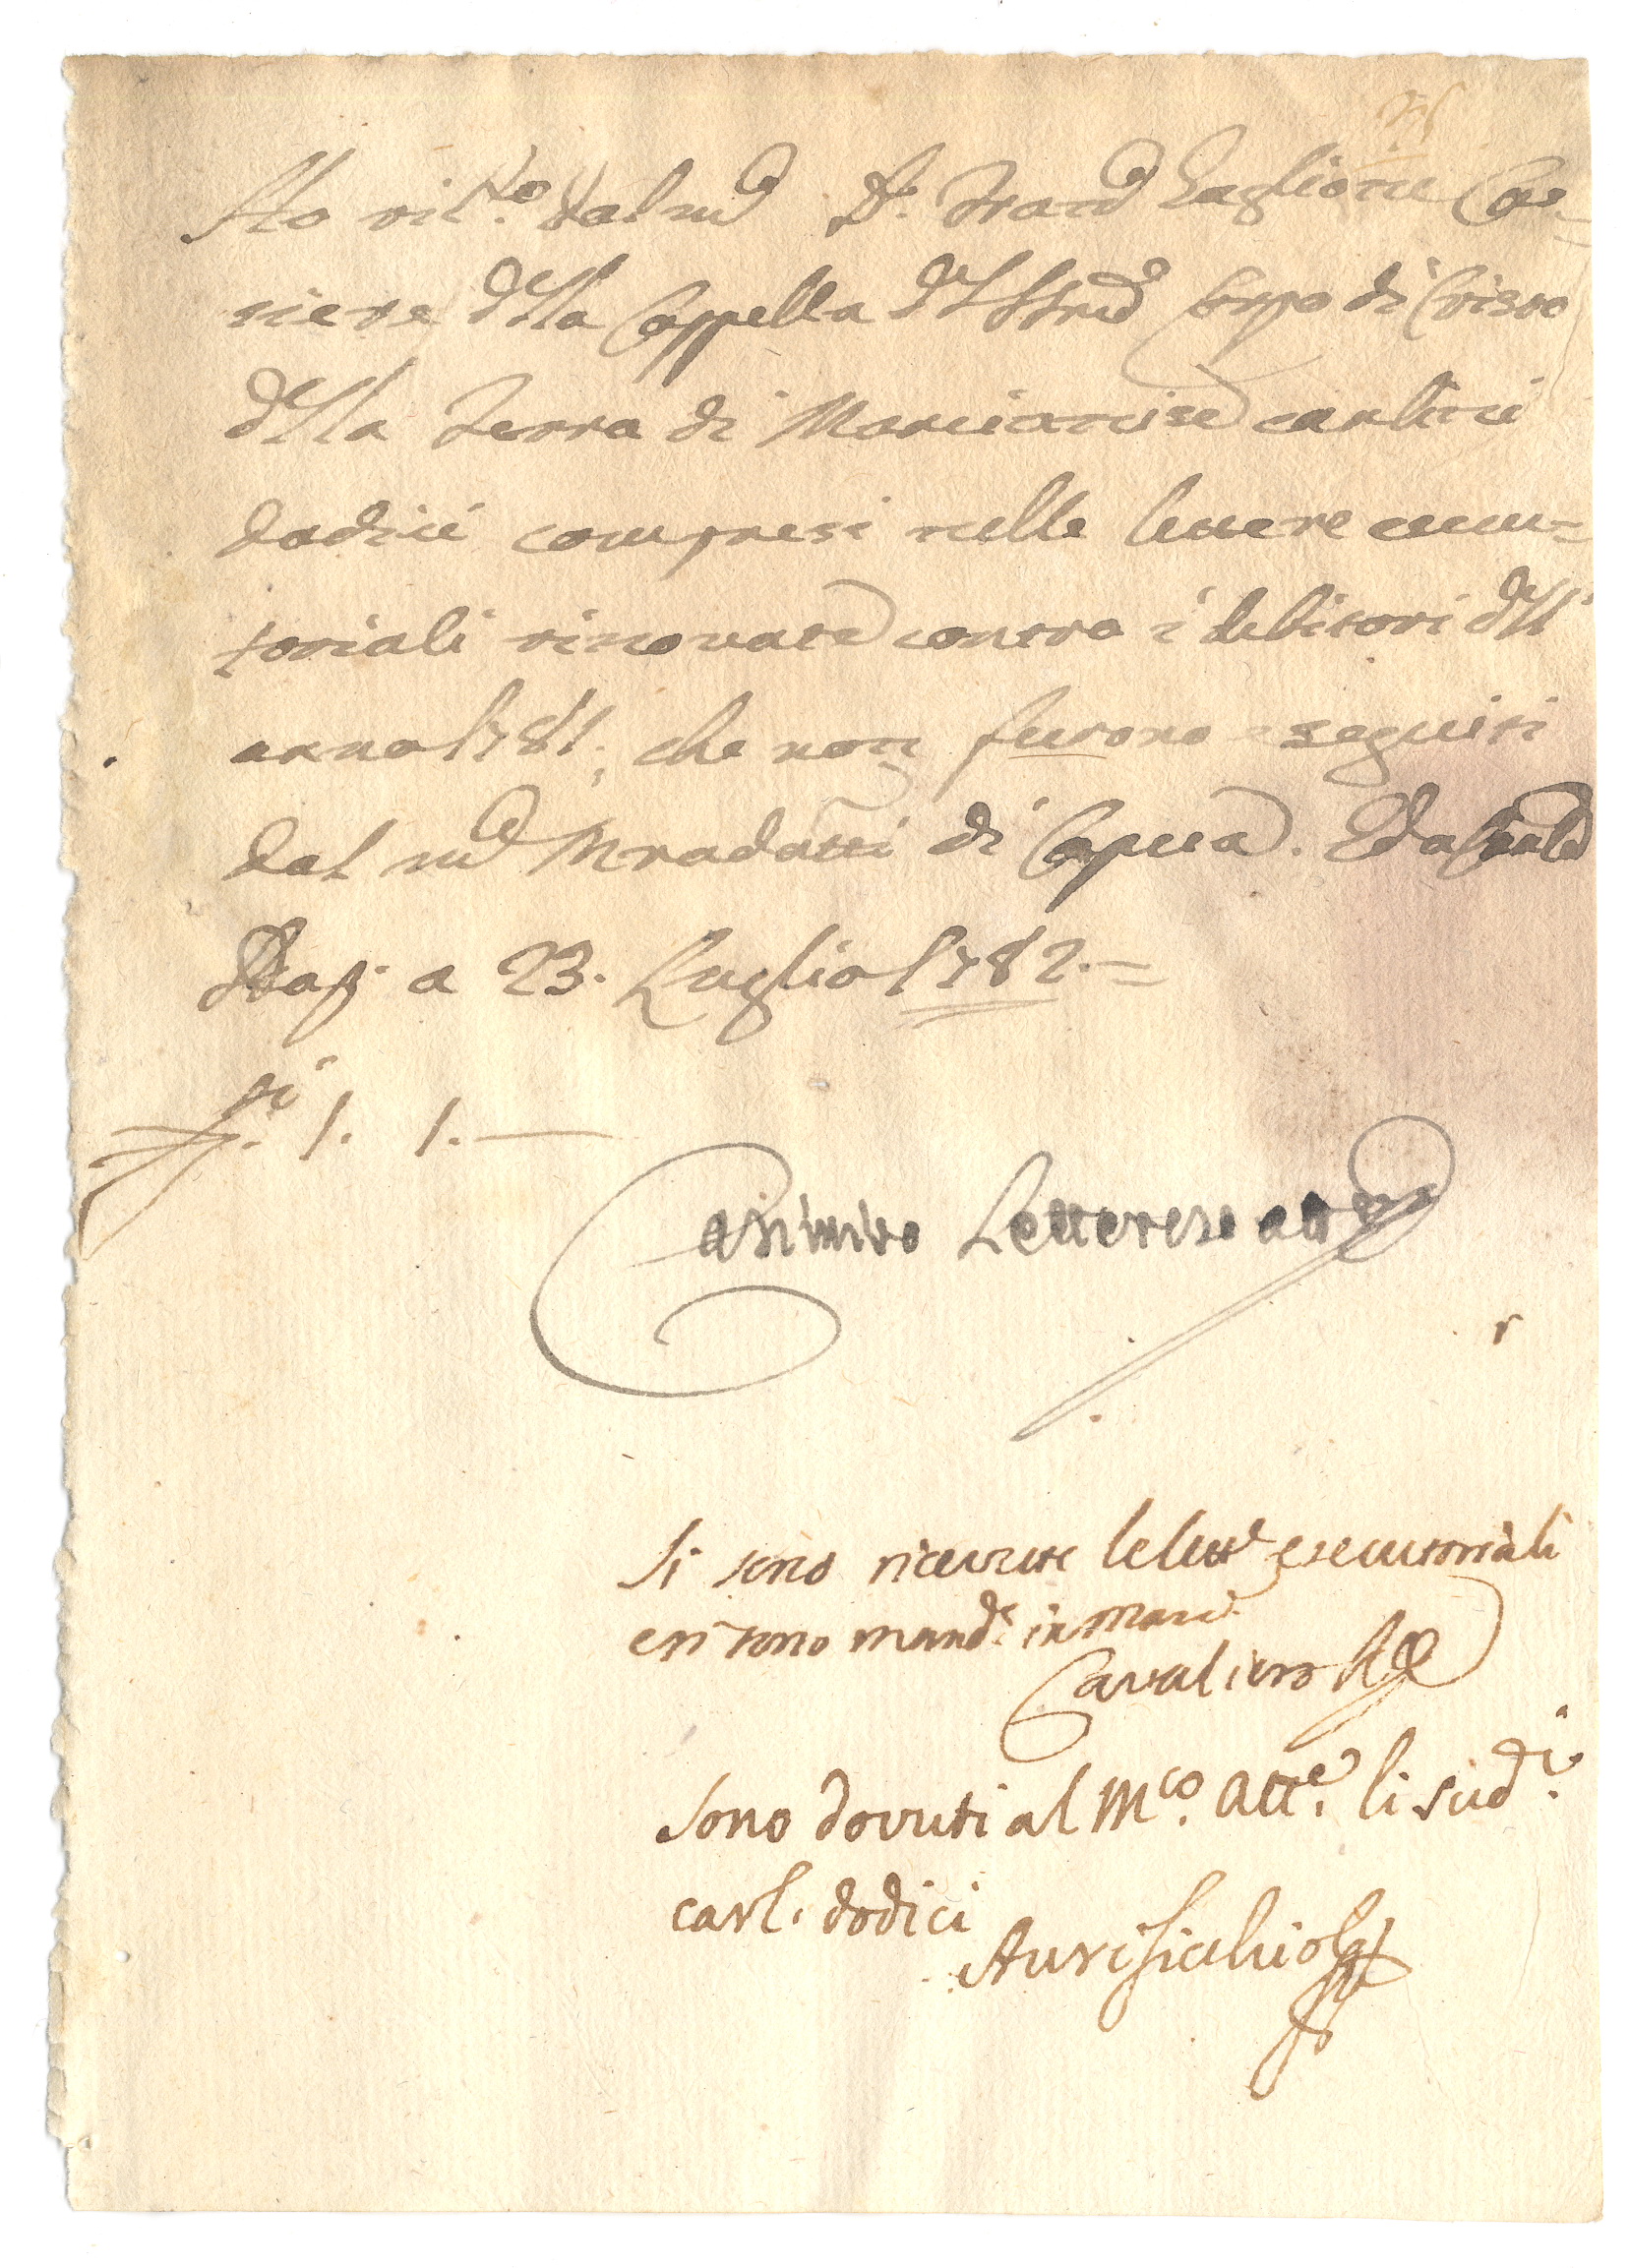 Ho ric.to dal m.co D. Fran.co Taglione Cas-
siere della Cappella del SS.mo Corpo di Cristo
della Terra di Marcianise carlini
dodici compresi nelle lettere esecu=
toriali rinovate contro i debitori dell'
anno 1781, che non furono eseguiti
dal m.co Mradatti di Capua. Ed a
Nap. a 23. Luglio 1782.=
1. 1.—
Casimiro Letterese att.
Si sono ricevute le lett.e esecutoriali
e si sono mand.e in Marc.
Cavaliero R.
Sono dovuti al M.co Att.e li sud.i
carl. dodici
Aurisicchio